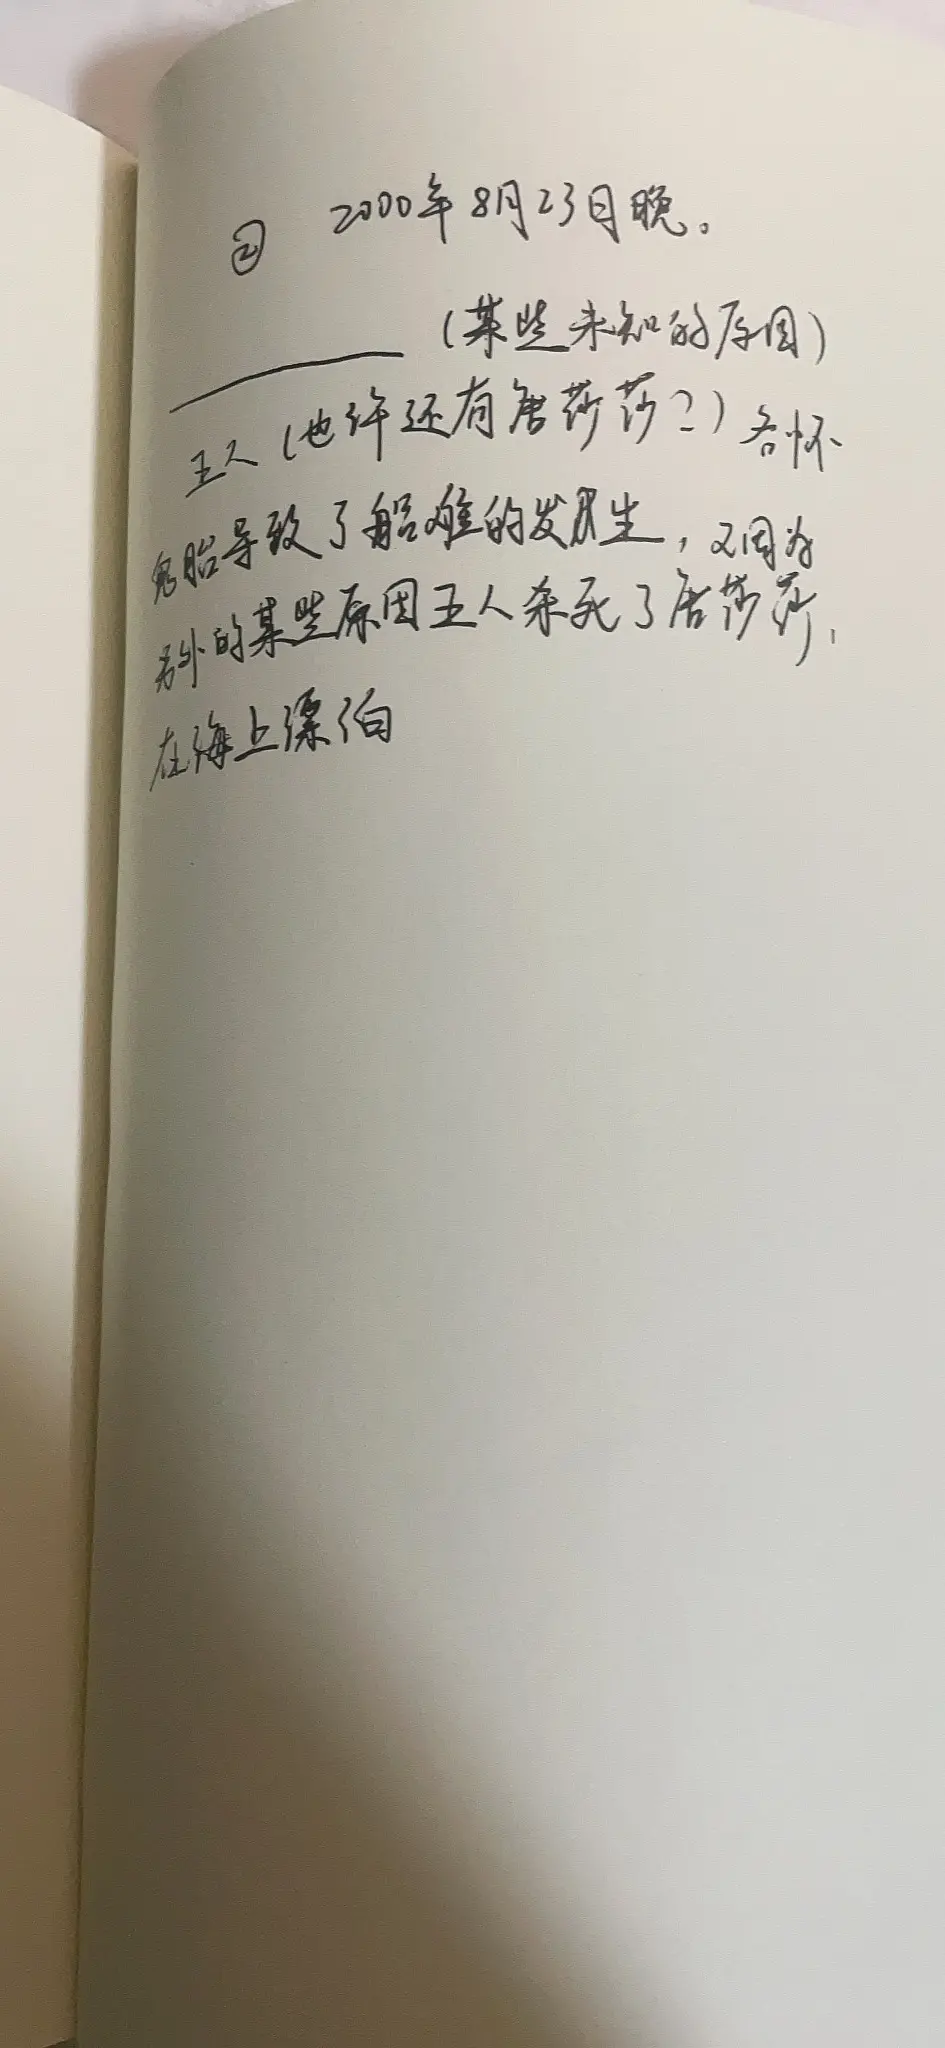 ② 2000年8月23日晚。
(某些未知的原因)
五人(也许还有唐莎莎?)各怀
鬼胎导致了船难的发生,又因为
另外的某些原因五人杀死了唐莎莎,
在海上漂泊